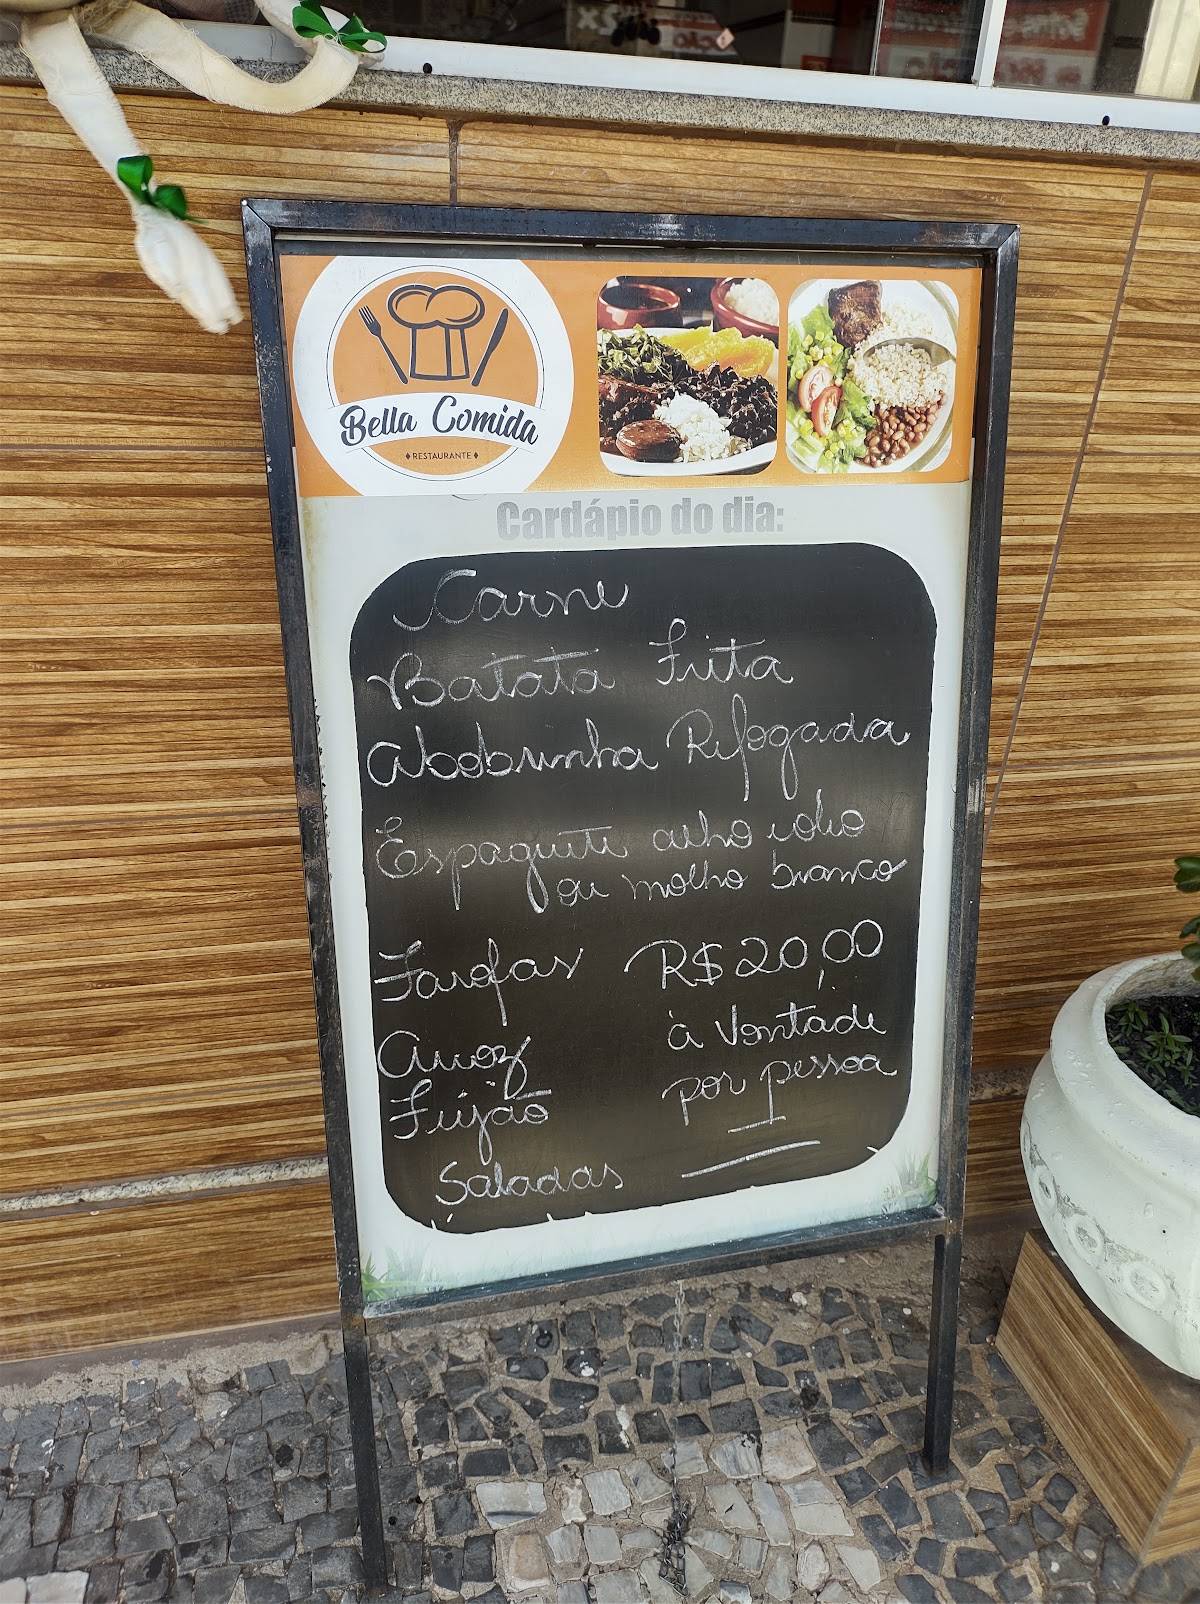 Bella Comida
RESTAURANTE
Cardápio do dia:
Carne
Batata Frita
Abobrinha Refogada
Espaguete alho e óleo
ou molho branco
Farofas R$ 20,00
Arroz à vontade
Feijão por pessoa
Saladas